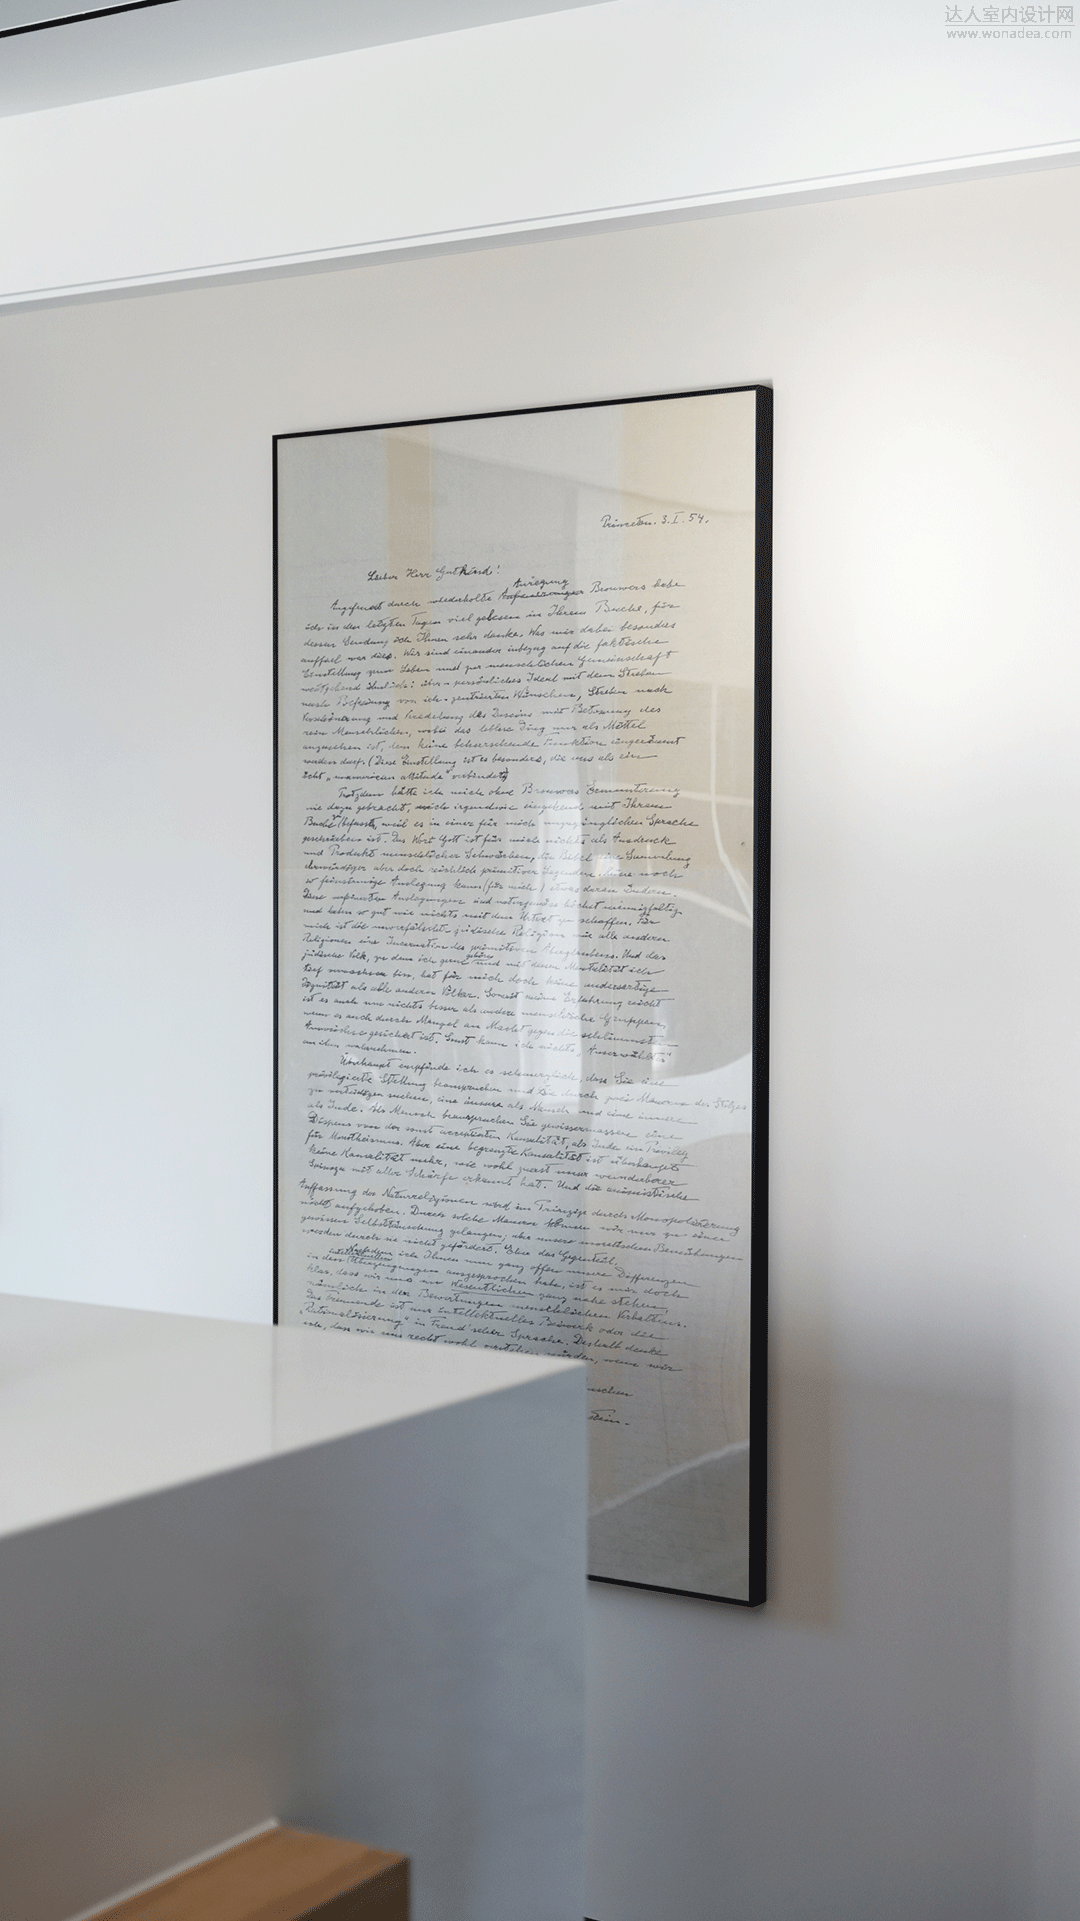 达人室内设计网
www.wonadea.com
Princeton. 3. I. 54.
Lieber Herr Gutkind!
Anregung
Angefeuert durch wiederholte Brouwers habe
ich in den letzten Tagen viel gelesen in Ihrem Buche, für
dessen Sendung ich Ihnen sehr danke. Was mir dabei besonders
auffiel war dies. Wir sind einander inbezug auf die faktische
Einstellung zum Leben und zur menschlichen Gemeinschaft
weitgehend ähnlich: über-persönliches Ideal mit dem Streben
nach Befreiung von ich-zentrierten Wünschen, Streben nach
Verschönerung und Veredelung des Daseins mit Betonung des
rein Menschlichen, wobei das leblose Ding nur als Mittel
anzusehen ist, dem keine beherrschende Funktion eingeräumt
werden darf. (Diese Einstellung ist es besonders, die uns als ein
echt „unamerican attitude" verbindet)
Trotzdem hätte ich mich ohne Brouwers Ermunterung
nie dazu gebracht, mich irgendwie eingehend mit Ihrem
Buche befasst, weil es in einer für mich unzugänglichen Sprache
geschrieben ist. Das Wort Gott ist für mich nichts als Ausdruck
und Produkt menschlicher Schwächen, die Bibel eine Sammlung
ehrwürdiger aber doch reichlich primitiver Legenden. Keine noch
so feinsinnige Auslegung kann (für mich) etwas daran ändern.
Diese verfeinerten Auslegungen sind naturgemäss höchst mannigfaltig
und haben so gut wie nichts mit dem Urtext zu schaffen. Für
mich ist die unverfälschte jüdische Religion wie alle anderen
Religionen eine Incarnation des primitiven Aberglaubens. Und das
jüdische Volk, zu dem ich gern gehöre und mit dessen Mentalität ich
tief verwachsen bin, hat für mich doch keine andersartige
Dignität als alle anderen Völker. Soweit meine Erfahrung reicht
ist es auch um nichts besser als andere menschliche Gruppen,
wenn es auch durch Mangel an Macht gegen die schlimmsten
Auswüchse gesichert ist. Sonst kann ich nichts „Auserwähltes"
an ihm wahrnehmen.
Überhaupt empfinde ich es schmerzlich, dass Sie eine
privilegierte Stellung beanspruchen und sie durch zwei Mauern des Stolzes
zu verteidigen suchen, eine äussere als Mensch und eine innere
als Jude. Als Mensch beanspruchen Sie gewissermassen einen
Dispens von der sonst acceptierten Kausalität, als Jude ein Privileg
für Monotheismus. Aber eine begrenzte Kausalität ist überhaupt
keine Kausalität mehr, wie wohl zuerst unser wunderbarer
Spinoza mit aller Schärfe erkannt hat. Und die animistische
Auffassung der Naturreligionen wird im Prinzip durch Monopolisierung
nicht aufgehoben. Durch solche Mauern können wir nur zu einer
gewissen Selbsttäuschung gelangen; aber unsere moralischen Bemühungen
werden durch sie nicht gefördert. Eher das Gegenteil.
Nachdem ich Ihnen nun ganz offen unsere Differenzen
in den intellektuellen Überzeugungen ausgesprochen habe, ist es mir doch
klar, dass wir uns im Wesentlichen ganz nahe stehen,
nämlich in den Bewertungen menschlichen Verhaltens.
Das Trennende ist nur intellektuelles Beiwerk oder die
„Rationalisierung" in Freud'scher Sprache. Deshalb denke
ich, dass wir uns recht wohl verstehen würden, wenn wir